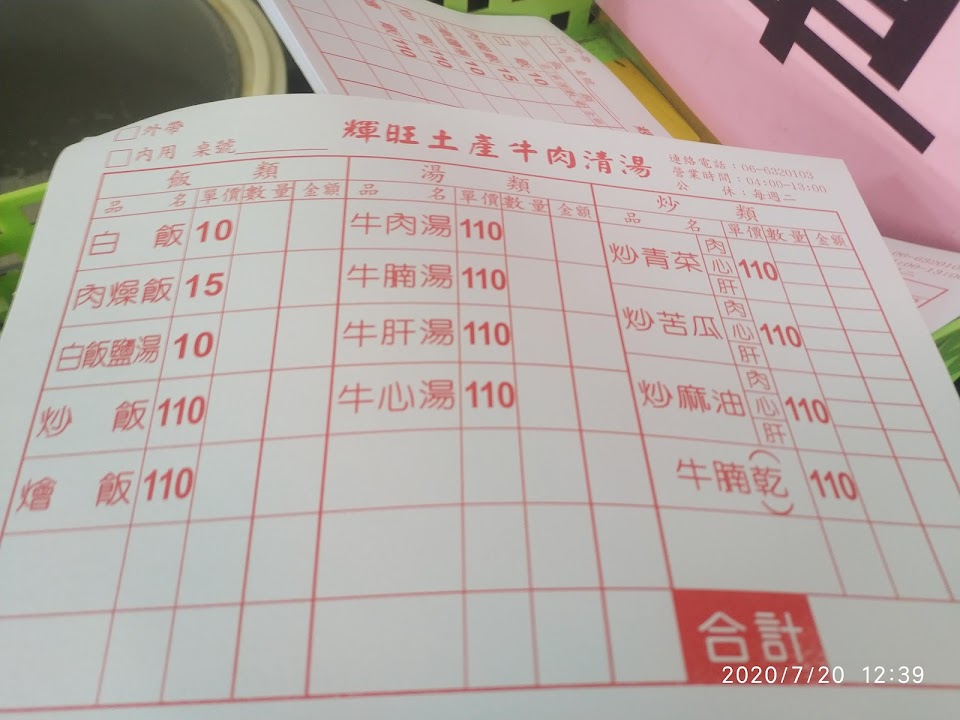 □外帶
□內用 桌號
輝旺土產牛肉清湯
連絡電話：06-6320103
營業時間：04:00-13:00
公 休：每週二
飯 類
品 名 單價 數量 金額
白 飯 10
肉燥飯 15
白飯鹽湯 10
炒 飯 110
燴 飯 110
湯 類
品 名 單價 數量 金額
牛肉湯 110
牛腩湯 110
牛肝湯 110
牛心湯 110
炒 類
品 名 單價 數量 金額
炒青菜 肉 心 肝 110
炒苦瓜 肉 心 肝 110
炒麻油 肉 心 肝 110
牛腩(乾) 110
合計
2020/7/20 12:39